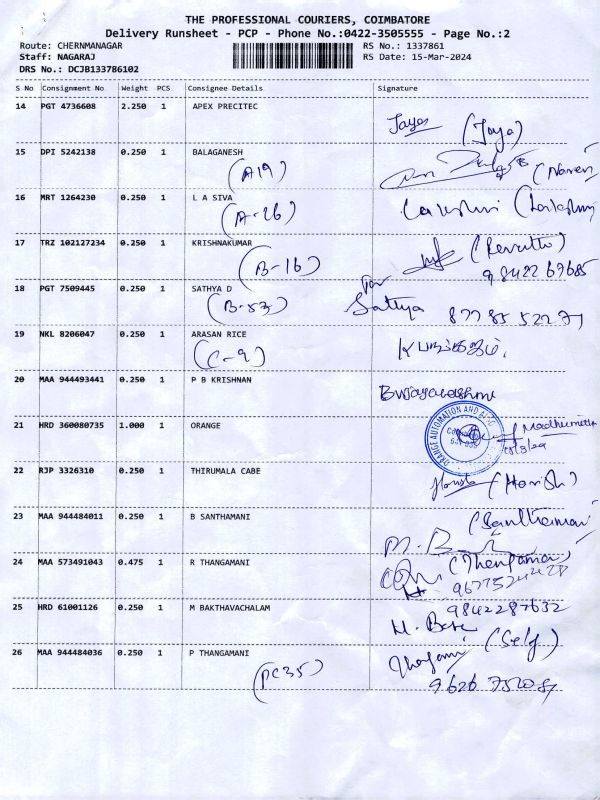 THE PROFESSIONAL COURIERS, COIMBATORE
Delivery Runsheet - PCP - Phone No.:0422-3505555 - Page No.:2
Route: CHERNMANAGAR RS No.: 1337861
Staff: NAGARAJ RS Date: 15-Mar-2024
DRS No.: DCJB133786102
S No Consignment No Weight PCS Consignee Details Signature
14 PGT 4736608 2.250 1 APEX PRECITEC
Jaya (Jaya)
15 DPI 5242138 0.250 1 BALAGANESH
(A19) (Naren)
16 MRT 1264230 0.250 1 L A SIVA
(A-26) Lakshmi (Lakshmi)
17 TRZ 102127234 0.250 1 KRISHNAKUMAR
(B-16) (Revathi)
98422 69685
18 PGT 7509445 0.250 1 SATHYA D
(B-53) for Sathya 87785 52277
19 NKL 8206047 0.250 1 ARASAN RICE
(C-9)
20 MAA 944493441 0.250 1 P B KRISHNAN
B.Vijayalakshmi
21 HRD 360080735 1.000 1 ORANGE
ORANGE AUTOMATION AND Madhumitha
22 RJP 3326310 0.250 1 THIRUMALA CABE
(Harish)
23 MAA 944484011 0.250 1 B SANTHAMANI
(Santhamani)
24 MAA 573491043 0.475 1 R THANGAMANI
(Thangamani)
25 HRD 61001126 0.250 1 M BAKTHAVACHALAM
9842287632
26 MAA 944484036 0.250 1 P THANGAMANI
(Self)
(PC35)